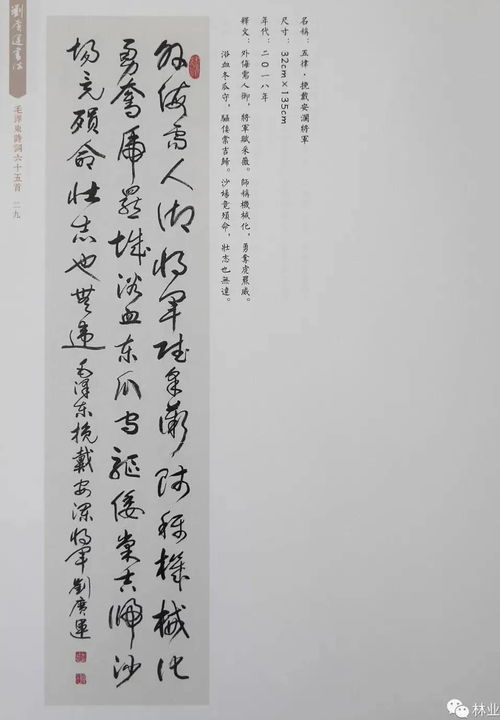 名稱：五律·挽戴安瀾將軍
尺寸：32cm×135cm
年代：二〇一八年
釋文：外侮需人御，將軍賦采薇。師稱機械化，勇奪虎羆威。
浴血冬瓜守，驅倭棠吉歸。沙場竟殞命，壯志也無違。
外侮需人御将军赋采薇师称機械化
勇奪虎羆威浴血东瓜守驱倭棠吉归沙
場竟殞命壮志也無違毛澤东挽戴安澜将军劉廣運
劉廣運書法
毛澤東詩詞六十五首 二九
林业